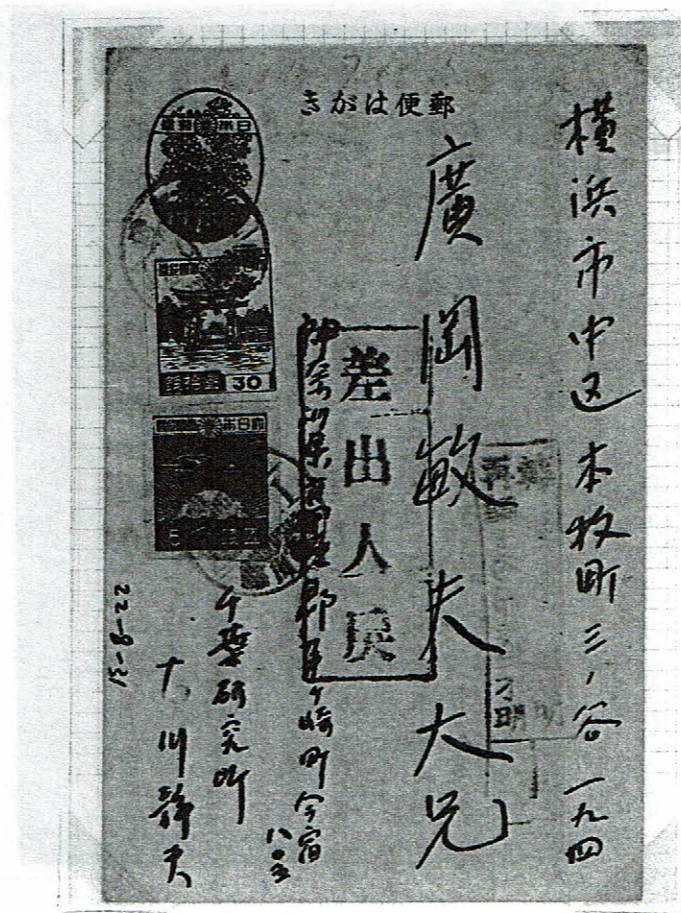 郵便はがき
横浜市中区本牧町三ノ谷一九四
廣岡敏夫大兄
差出人戻
神奈川県高座郡茅ヶ崎町今宿
八〇三
千葉研究所
大川静夫
日本郵便
30
5